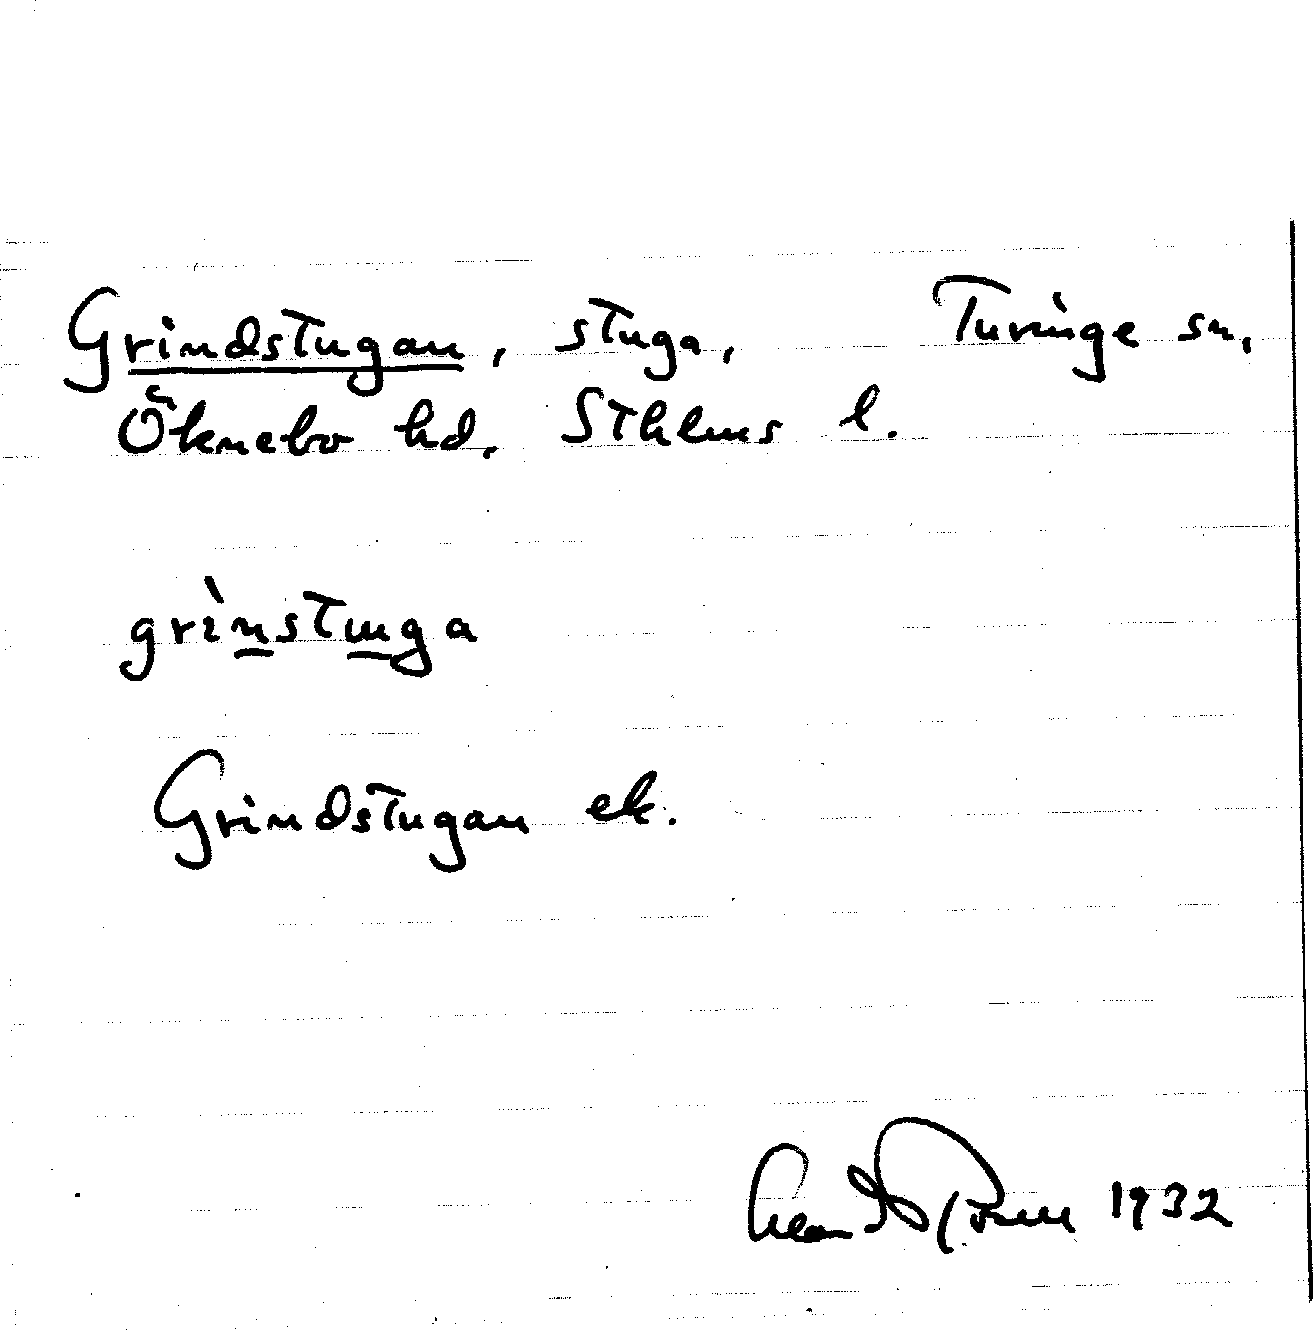 Grindstugan, stuga, Turinge sn,
Öknebo hd, Sthlms l.
grìnstuga
Grindstugan ek.
1932